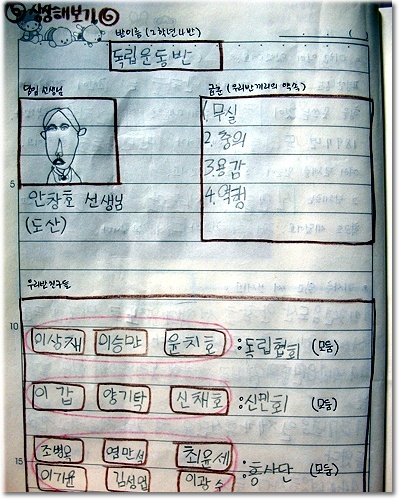 상상해보기
반이름 (2학년 4반)
독립운동반
담임선생님
급훈 (우리반끼리의 약속)
1. 무실
2. 충의
3. 용감
4. 역행
5
안창호 선생님
(도산)
우리반친구들
10
이상재 이승만 윤치호 : 독립협회 (모둠)
이갑 양기탁 신채호 : 신민회 (모둠)
조병옥 염만석 최윤세
15 : 흥사단 (모둠)
김성업 이광수